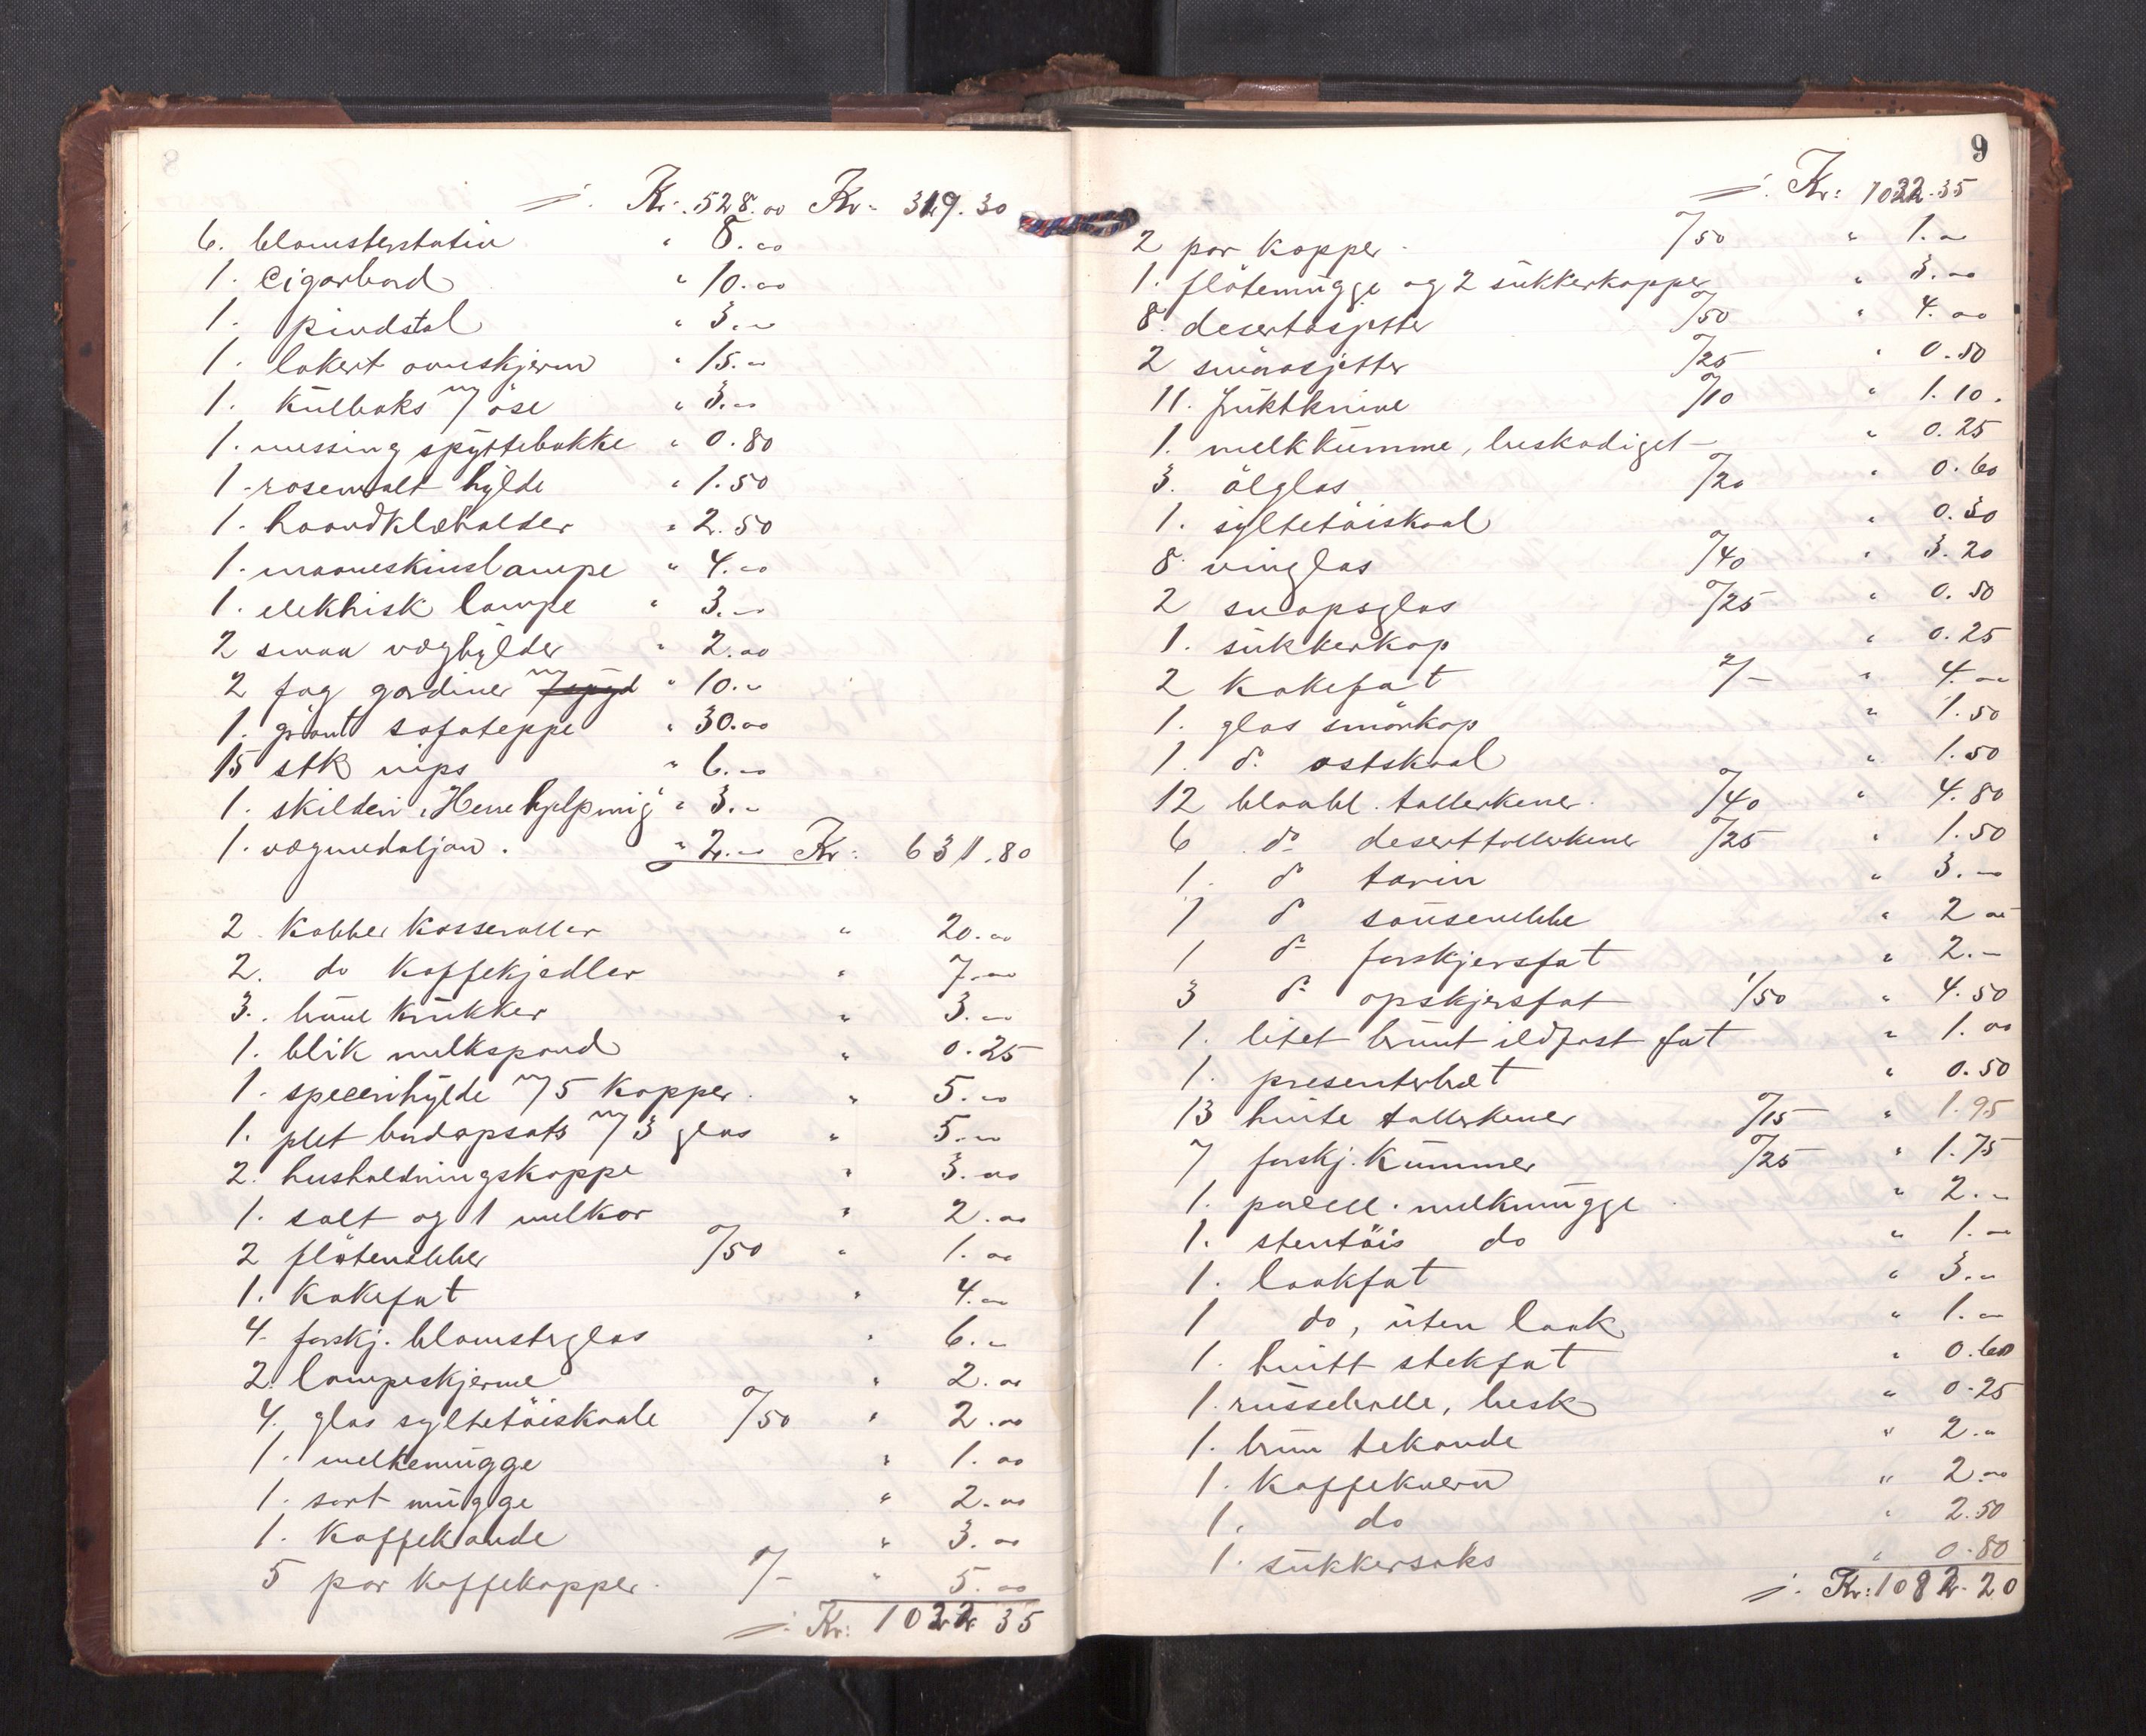 Kr. 528.00 Kr. 319.30
6. blomsterstativ " 8.00
1. Cigarbord " 10.00
1. pindstol " 3.00
1. lakert ovnskjerm " 15.00
1. Kulboks m/ öse " 3.00
1. messing spyttebakke " 0.80
1. rosemalt hylde " 1.50
1. haandklæholder " 2.50
1. maaneskinslampe " 4.00
1. elektrisk lampe " 3.00
2 smaa væghylder " 2.00
2 fag gardiner m/ " 10.00
1. grönt sofateppe " 30.00
15 stk nips " 6.00
1. skilderi "Herre hjelp mig" " 3.00
1. vægmedaljon. " 2.00 Kr: 631.80
2. Kobber Kasseroller " 20.00
2. do Kaffekjedler " 7.00
3. brune Krukker " 3.00
1. blik melkspand " 0.25
1. speserihylde m/ 5 Kopper. " 5.00
1. plet bordopsats m/ 3 glas " 5.00
2. husholdningskoppe " 3.00
1. salt og 1 melkar " 2.00
2 flötenebber º/50 " 1.00
1. Kakefat " 4.00
4. forskj. blomsterglas " 6.00
2. lampeskjerme " 2.00
4. glas syltetöiskaale º/50 " 2.00
1. melkemugge " 1.00
1. sort mugge " 2.00
1. Kaffekande " 3.00
5 par Kaffekopper. 1/- " 5.00
Kr: 1032.35
9
Kr: 1032.35
2 par Kopper. º/50 " 1.00
1. flötemugge og 2 sukkerkopper " 3.00
8. desertasjetter º/50 " 4.00
2 smaaasjetter º/25 " 0.50
11. fruktknive º/10 " 1.10.
1. melkkumme, beskadiget " 0.25
3. ölglas º/20 " 0.60
1. syltetöiskaal " 0.30
8. vinglas º/40 " 3.20
2 snapsglas º/25 " 0.50
1. sukkerkop " 0.25
2 Kakefat 2/- " 4.00
1. glas smörkop " 1.50
1. do ostskaal " 1.50
12 blaabl. tallerkener. º/40 " 4.80
6 do deserttallerkener º/25 " 1.50
1. do tarin " 3.00
1 do sausenebbe " 2.00
1 do forskjersfat " 2.00
3 do opskjersfat 1/50 " 4.50
1. litet brunt ildfast fat " 1.00
1. presenterbræt " 0.50
13 hvite tallerkener º/15 " 1.95
7 forskj. Kummer º/25 " 1.75
1. porcell. melkmugge " 2.00
1. stentöis do " 1.00
1. laakfat " 3.00
1 do, uten laak " 1.00
1. hvitt stekfat " 0.60
1. russebolle, besk " 0.25
1. brun tekande " 2.00
1. Kaffekvern " 2.00
1. do " 2.50
1. sukkersaks " 0.80
Kr: 1082.20